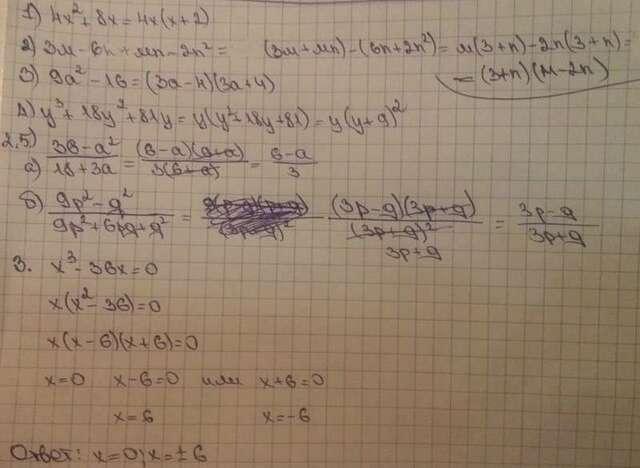 1) 4x² + 8x = 4x(x+2)
2) 3м - 6n + мn - 2n² = (3м + мn) - (6n + 2n²) = м(3+n) - 2n(3+n) =
= (3+n)(м-2n)
3) 9a² - 16 = (3a-4)(3a+4)
4) y³ + 18y² + 81y = y(y² + 18y + 81) = y(y+9)²
2,5)
а) 36-a² / 18+3a = (6-a)(6+a) / 3(6+a) = 6-a / 3
б) 9p² - q² / 9p² + 6pq + q² = (3p-q)(3p+q) / (3p+q)² 3p+q = 3p-q / 3p+q
3. x³ - 36x = 0
x(x² - 36) = 0
x(x-6)(x+6) = 0
x=0 x-6=0 или x+6=0
x=6 x=-6
Ответ: x=0; x=±6